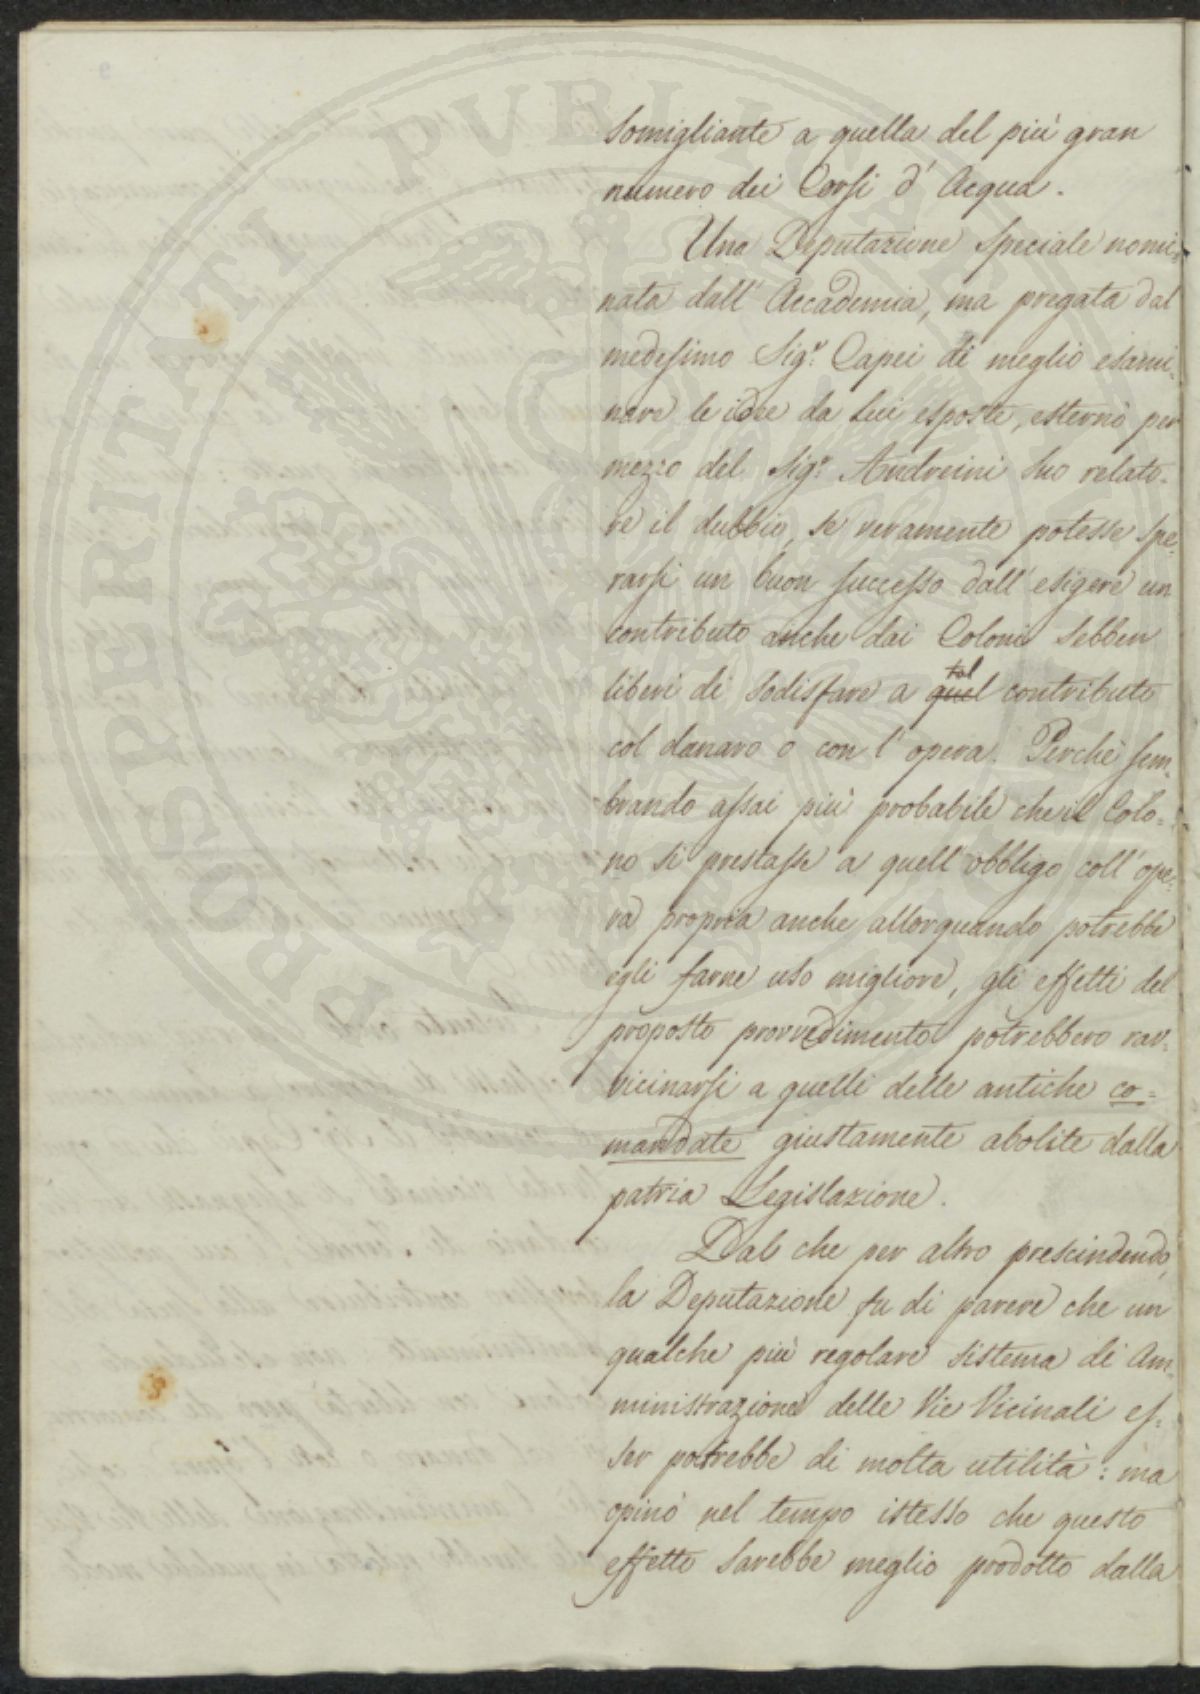 somigliante a quella del più gran
numero dei Corsi d' Acqua.
Una Deputazione speciale nomi-
nata dall' Accademia, ma pregata dal
medesimo Sigr. Capei di meglio esami-
nare le idee da lui esposte, esternò per
mezzo del Sigr. Andreini suo relato-
re il dubbio, se veramente potesse spe-
rarsi un buon successo dall' esigere un
contributo anche dai Coloni sebben
liberi di sodisfare a quel tal contributo
col danaro o con l' opera. Perchè sem-
brando assai più probabile che il Colo-
no si prestasse a quell' obbligo coll' ope-
ra propria anche allorquando potrebbe
egli farne uso migliore, gli effetti del
proposto provvedimento potrebbero rav-
vicinarsi a quelli delle antiche co-
mandate giustamente abolite dalla
patria Legislazione.
Dal che per altro prescindendo,
la Deputazione fu di parere che un
qualche più regolare sistema di Am-
ministrazione delle Vie Vicinali es-
ser potrebbe di molta utilità: ma
opinò nel tempo istesso che questo
effetto sarebbe meglio prodotto dalla
PROSPERITATI PVBLICAE